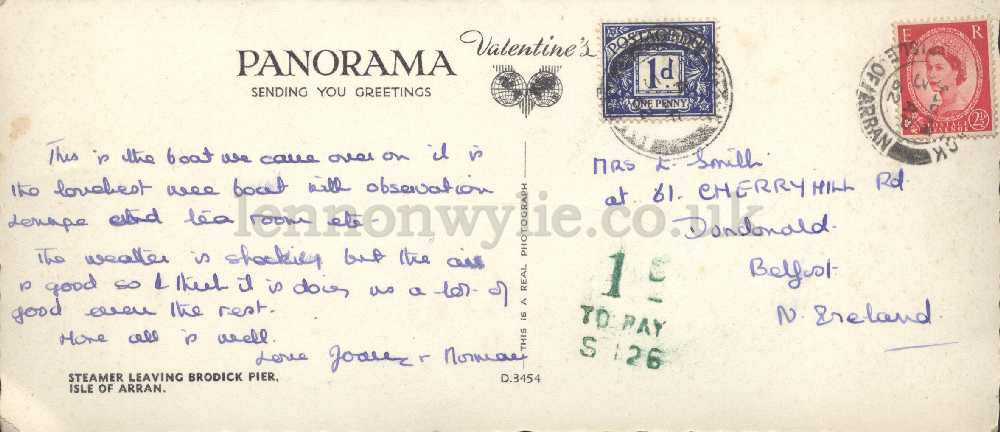 PANORAMA
SENDING YOU GREETINGS
Valentine's
POSTAGE DUE
1d
ONE PENNY
E R
POSTAGE
REVENUE
2½D
ISLE OF ARRAN
This is the boat we came over on it is
the loveliest wee boat with observation
lounge and tea room etc.
The weather is shocking but the air
is good so I think it is doing us a lot of
good even the rest.
Hope all is well.
Love Joan + Norman
STEAMER LEAVING BRODICK PIER,
ISLE OF ARRAN.
D.3454
THIS IS A REAL PHOTOGRAPH
Mrs E. Smith
at 61. CHERRYHILL Rd.
Dundonald.
Belfast
N. Ireland.
1
TO PAY
S 126
lennonwylie.co.uk